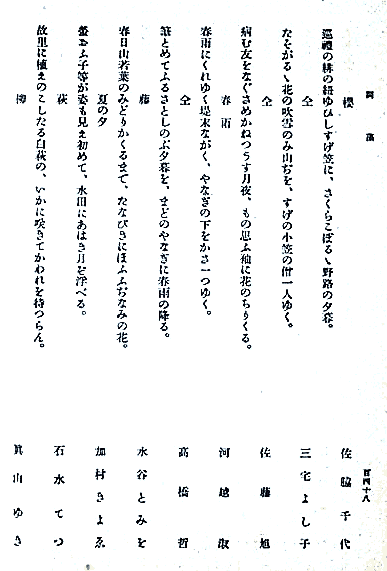 詞藻
百四十八
櫻　佐脇千代
巡禮の緋の紐ゆひしすげ笠に、さくらこぼるゝ野路の夕暮。
仝　三宅よし子
たそがるゝ花の吹雪のみ山ぢを、すげの小笠の僧一人ゆく。
仝　佐藤旭
病む友をなぐさめかねつうす月夜、もの思ふ袖に花のちりくる。
春雨　河越淑
春雨にくれゆく堤末ながく、やなぎの下をかさ一つゆく。
仝　高橋哲
筆とめてふるさとしのぶ夕暮を、まどのやなぎに春雨の降る。
藤　水谷とみを
春日山若葉のみどりかくるまで、たなびきにほふふぢなみの花。
夏の夕　加村きよゑ
螢おふ子等が姿も見え初めて、水田にあはき月を浮べる。
萩　石水てつ
故里に植ゑのこしたる白萩の、いかに咲きてかわれを待つらん。
柳　眞山ゆき